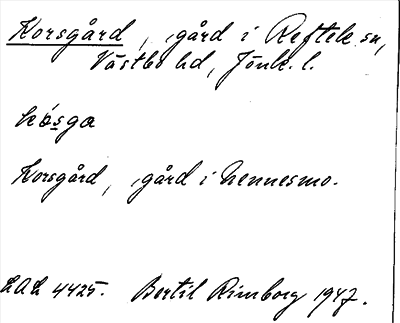 Korsgård, gård i Reftele sn,
Västbo hd, Jönk. l.
kȯsga
Korsgård, gård i Nennesmo.
LAL 4425. Bertil Rimborg 1947.